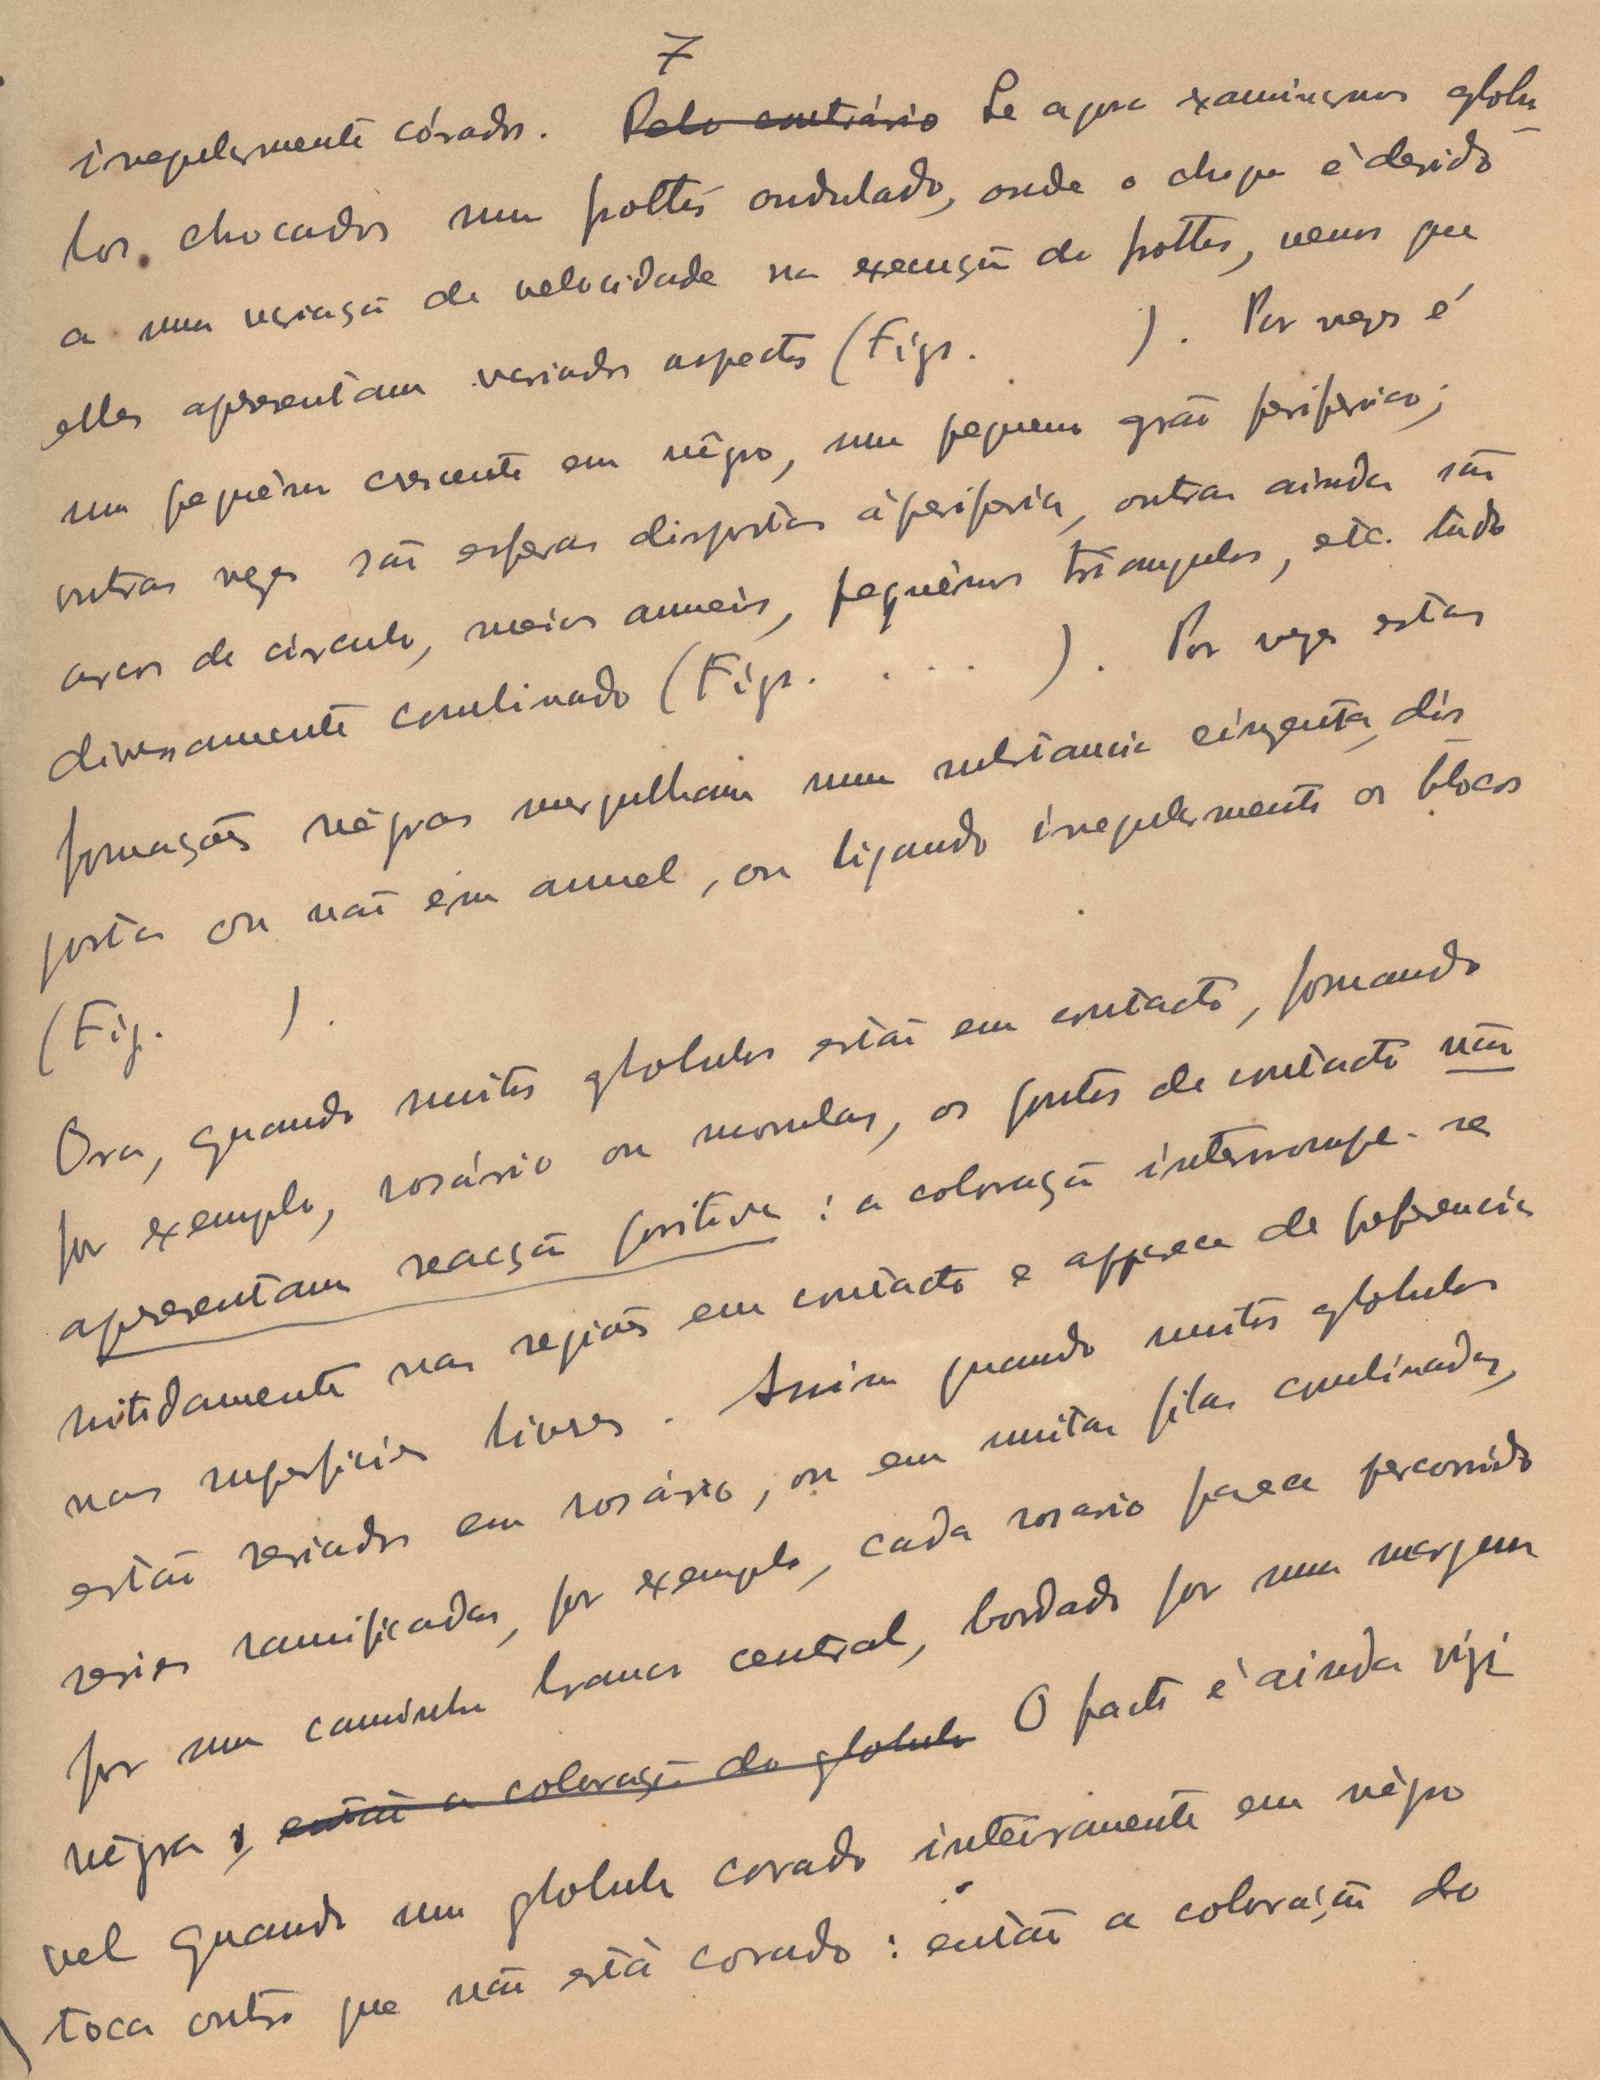 7
irregularmente córados. Pelo contrário Se agora examinarmos globu
los chocados num frottis ondulado, onde o choque é devido
a uma variação de velocidade na execução do frottis, vemos que
elles apresentam variados aspectos (Figs. ). Por vezes é
um pequeno crescente em négro, um pequeno grão periferico;
outras vezes são esferas dispostas á periferia, outras ainda são
arcos de circulo, meios anneis, pequénos triangulos, etc. tudo
diversamente combinado (Figs. . . . ). Por vezes estas
formações négras mergulham numa substancia cinzenta, dis
posta ou não em annel, ou ligando irregularmente os blocos
(Fig. ).
Ora, quando muitos globulos estão em contacto, formando
por exemplo, rosário ou morulas, os pontos de contacto não
apresentam reacção positiva : a coloração interrompe-se
nitidamente nas regiões em contacto e apparece de preferencia
nas superficies livres. Assim quando muitos globulos
estão seriados em rosário, ou em muitas filas combinadas,
series ramificadas, por exemplo, cada rosario parece percorrido
por um caminho branco central, bordado por uma margem
négra, então a coloração do globulo O facto é ainda visi
vel quando um globulo corado inteiramente em négro
toca outro que não está corado : então a coloração do